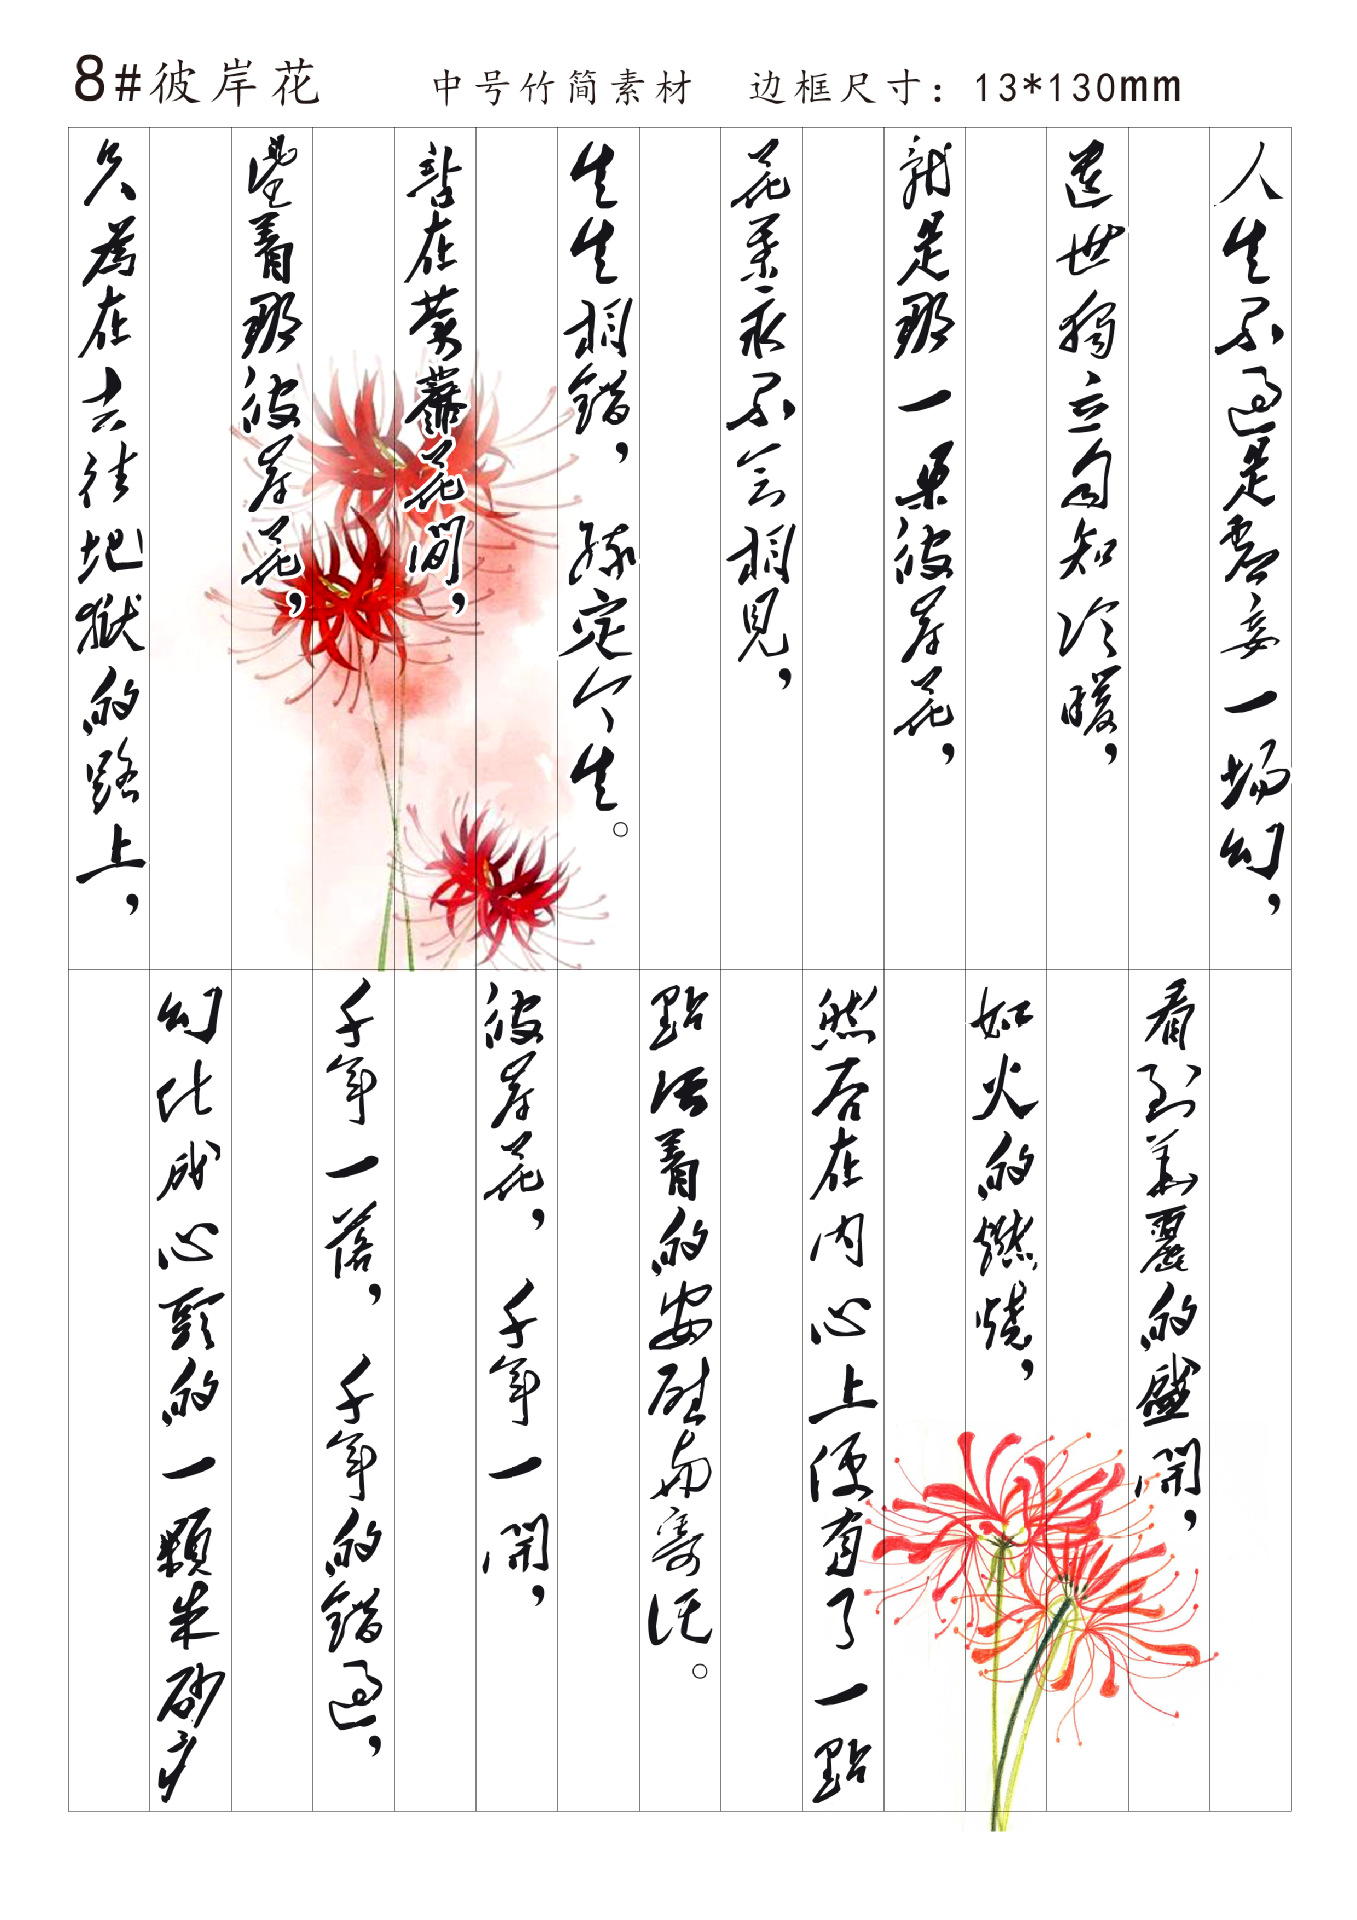 8#彼岸花 中号竹简素材 边框尺寸：13*130mm
人生不過是虛妄一場幻，
遺世獨立自知冷暖，
就是那一朵彼岸花，
花葉永不会相見，
生生相錯，緣定今生。
站在荼蘼花間，
望着那彼岸花，
久為在去往地獄的路上，
看到美麗的盛開，
如火的燃燒，
然后在内心上便有了一點
點活着的安慰与寄託。
彼岸花，千年一開，
千年一落，千年的錯過，
幻化成心頭的一顆朱砂